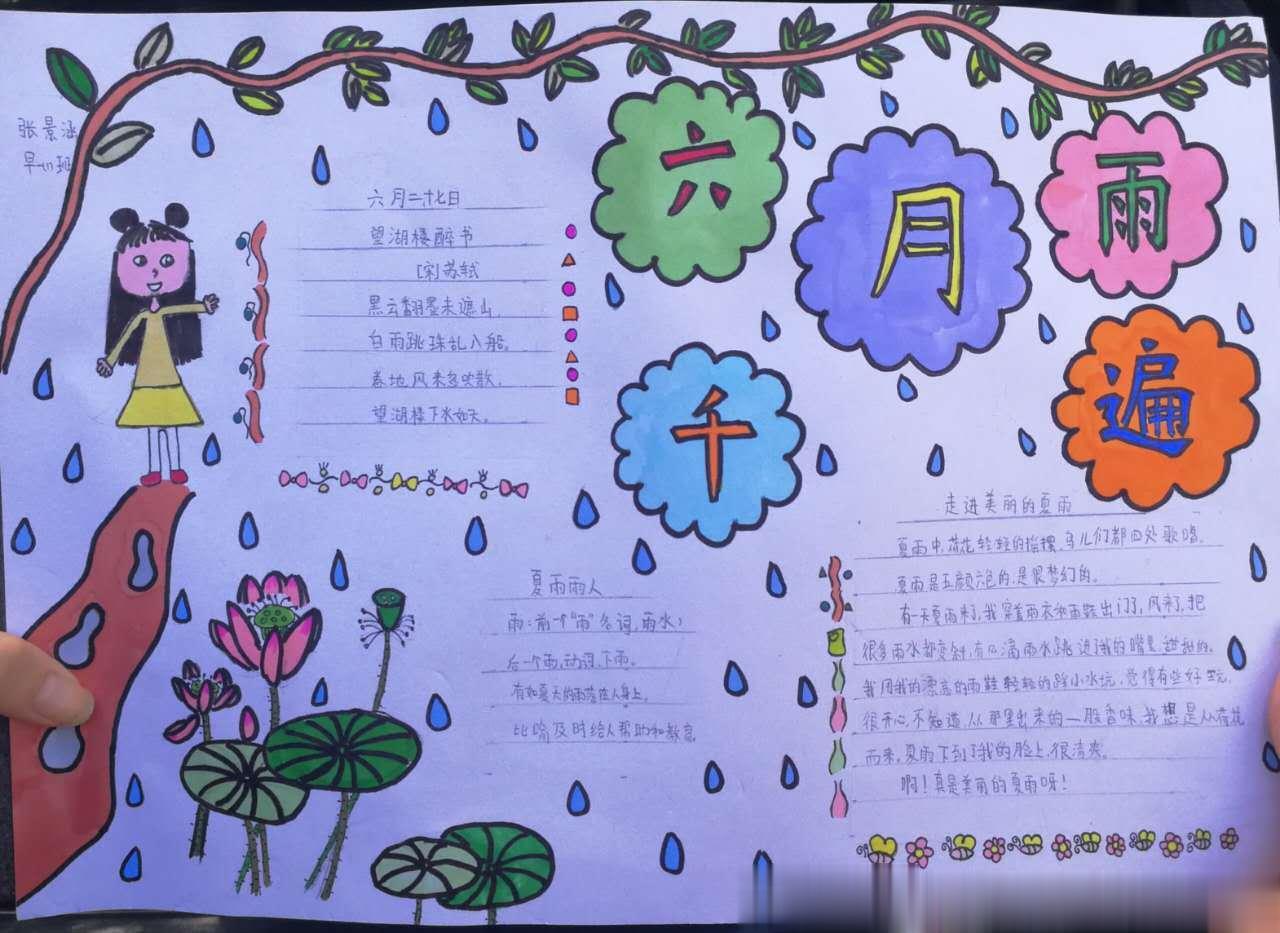 张景涵
六月雨
千遍
六月二十七日
望湖楼醉书
[宋]苏轼
黑云翻墨未遮山,
白雨跳珠乱入船。
卷地风来忽吹散,
望湖楼下水如天。
夏雨雨人
雨:前一个“雨”名词,雨水;
后一个雨,动词,下雨。
有如夏天的雨落在人身上。
比喻及时给人帮助和教育
走进美丽的夏雨
夏雨中,荷花轻轻的摇摆,鸟儿们都四处歌唱。
夏雨是五颜六色的,是很梦幻的。
有一天夏雨来了,我穿着雨衣和雨鞋出门了,风来了,把
很多雨水都变斜,有几滴雨水跳进了我的嘴里,甜甜的。
我用我的漂亮的雨鞋轻轻的踩小水坑,觉得有些好玩,
很开心,不知道从那里出来的一股香味,我想是从荷花
而来,夏雨下到了我的脸上,很清爽。
啊!真是美丽的夏雨呀!